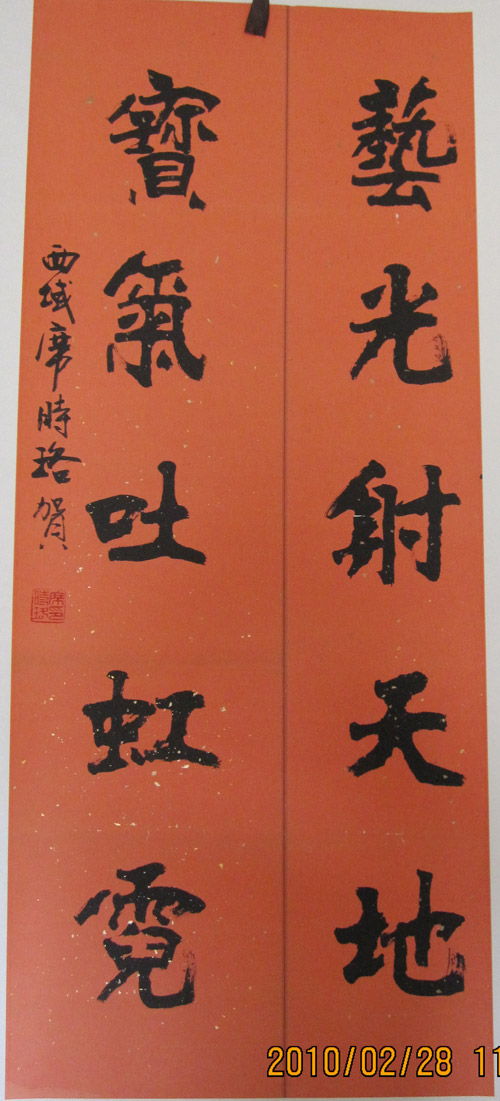 藝光射天地
寶氣吐虹霓
西域席時珞賀
2010/02/28 11